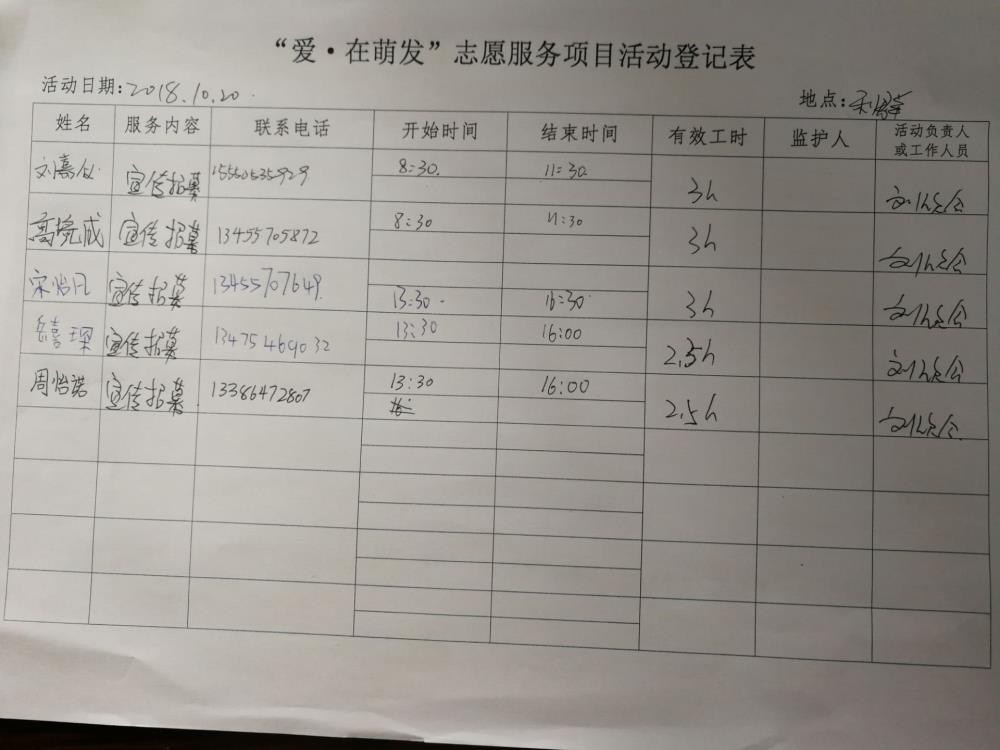 “爱·在萌发”志愿服务项目活动登记表
活动日期:2018.10.20. 地点:
姓名 服务内容 联系电话 开始时间 结束时间 有效工时 监护人 活动负责人或工作人员
刘嘉仪 宣传招募 15550535929 8:30. 11:30 3h
高境成 宣传招募 13455705872 8:30 11:30 3h
宋怡凡 宣传招募 13455707649 13:30 16:30 3h
岳喜琛 宣传招募 13475469032 13:30 16:00 2.5h
周怡诺 宣传招募 13386472807 13:30 16:00 2.5h